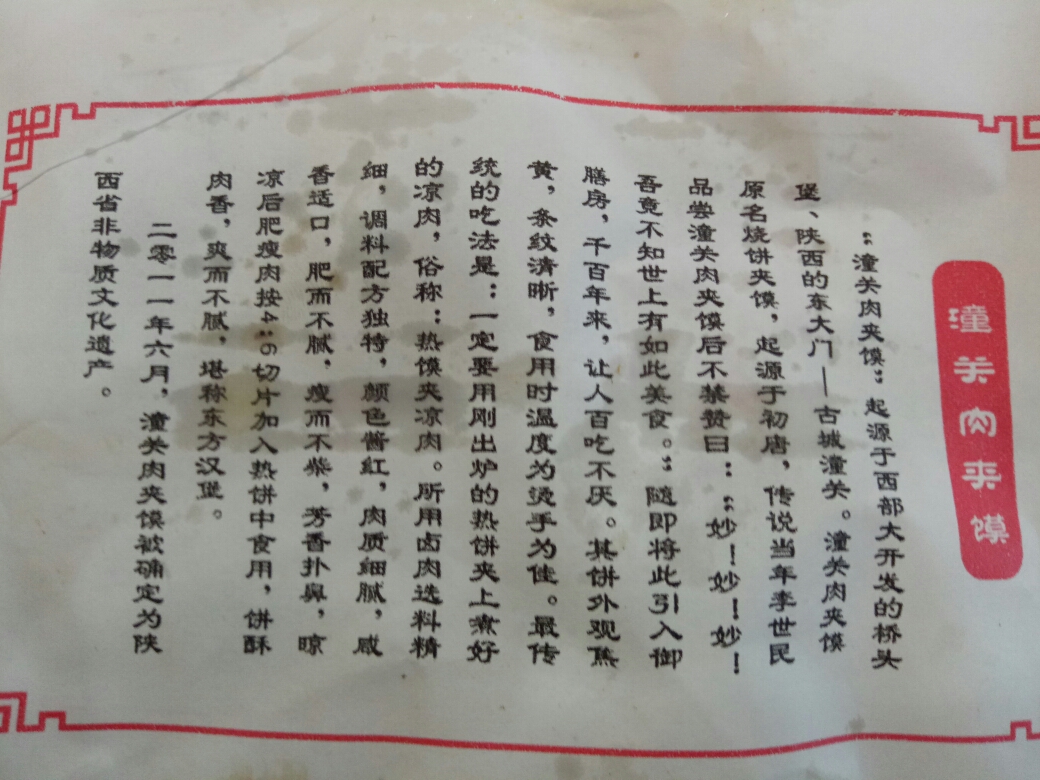 潼关肉夹馍
“潼关肉夹馍”起源于西部大开发的桥头
堡、陕西的东大门—古城潼关。潼关肉夹馍
原名烧饼夹馍，起源于初唐，传说当年李世民
品尝潼关肉夹馍后不禁赞曰：“妙！妙！妙！
吾竟不知世上有如此美食。”随即将此引入御
膳房，千百年来，让人百吃不厌。其饼外观焦
黄，条纹清晰，食用时温度为烫手为佳。最传
统的吃法是：一定要用刚出炉的热饼夹上煮好
的凉肉，俗称：热馍夹凉肉。所用卤肉选料精
细，调料配方独特，颜色酱红，肉质细腻，咸
香适口，肥而不腻，瘦而不柴，芳香扑鼻，晾
凉后肥瘦肉按4:6切片加入热饼中食用，饼酥
肉香，爽而不腻，堪称东方汉堡。
二零一一年六月，潼关肉夹馍被确定为陕
西省非物质文化遗产。